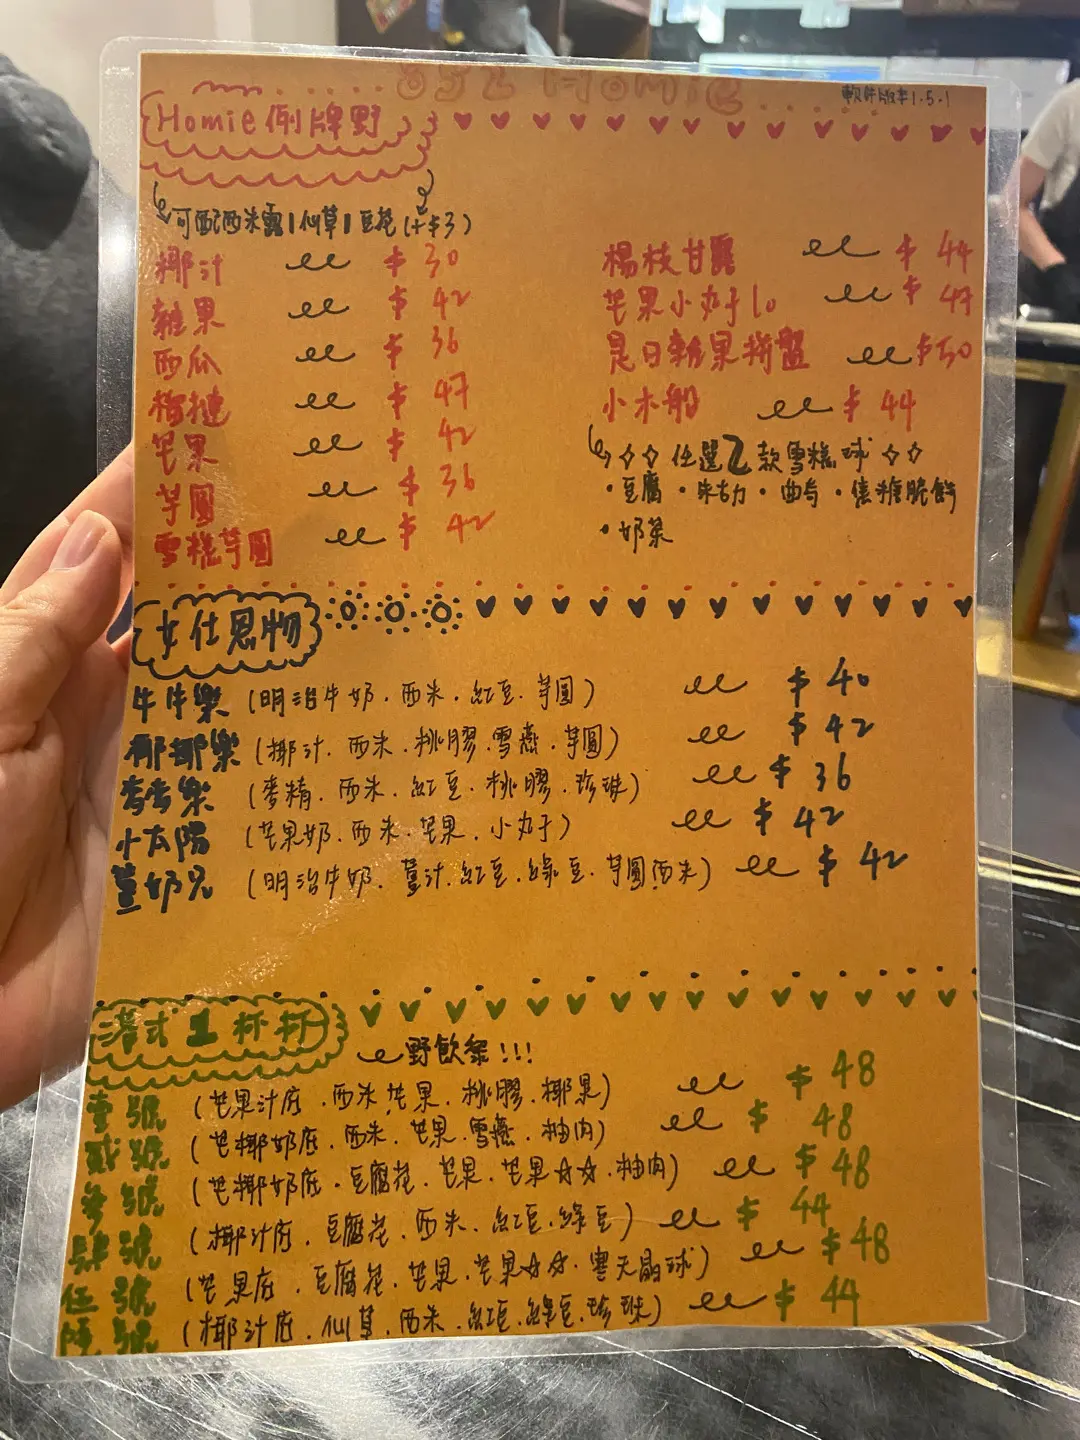 852 Homie
軟件版本1.5.1
Homie例牌野
可配西米露/仙草/豆花(+$3)
椰汁 $30
雜果 $42
西瓜 $36
榴槤 $47
芒果 $42
芋圓 $36
雪糕芋圓 $42
楊枝甘露 $44
芒果小丸子10 $47
是日雜果拼盤 $50
小木船 $44
任選2款雪糕球
・豆腐・朱古力・曲奇・焦糖脆餅
・奶茶
女仕恩物
牛牛樂 (明治牛奶．西米．紅豆．芋圓) $40
椰椰樂 (椰汁．西米．桃膠．雪燕．芋圓) $42
麥麥樂 (麥精．西米．紅豆．桃膠．珍珠) $36
小太陽 (芒果奶．西米．芒果．小丸子) $42
薑奶兄 (明治牛奶．薑汁．紅豆．綠豆．芋圓．西米) $42
港式1杯杯
野飲架!!!
壹號 (芒果汁底．西米．芒果．桃膠．椰果) $48
貳號 (芒椰奶底．西米．芒果．雪燕．柚肉) $48
參號 (芒椰奶底．豆腐花．芒果．芒果☆☆．柚肉) $48
肆號 (椰汁底．豆腐花．西米．紅豆．綠豆) $44
伍號 (芒果底．豆腐花．芒果．芒果☆☆．寒天晶球) $48
陸號 (椰汁底．仙草．西米．紅豆．綠豆．珍珠) $44